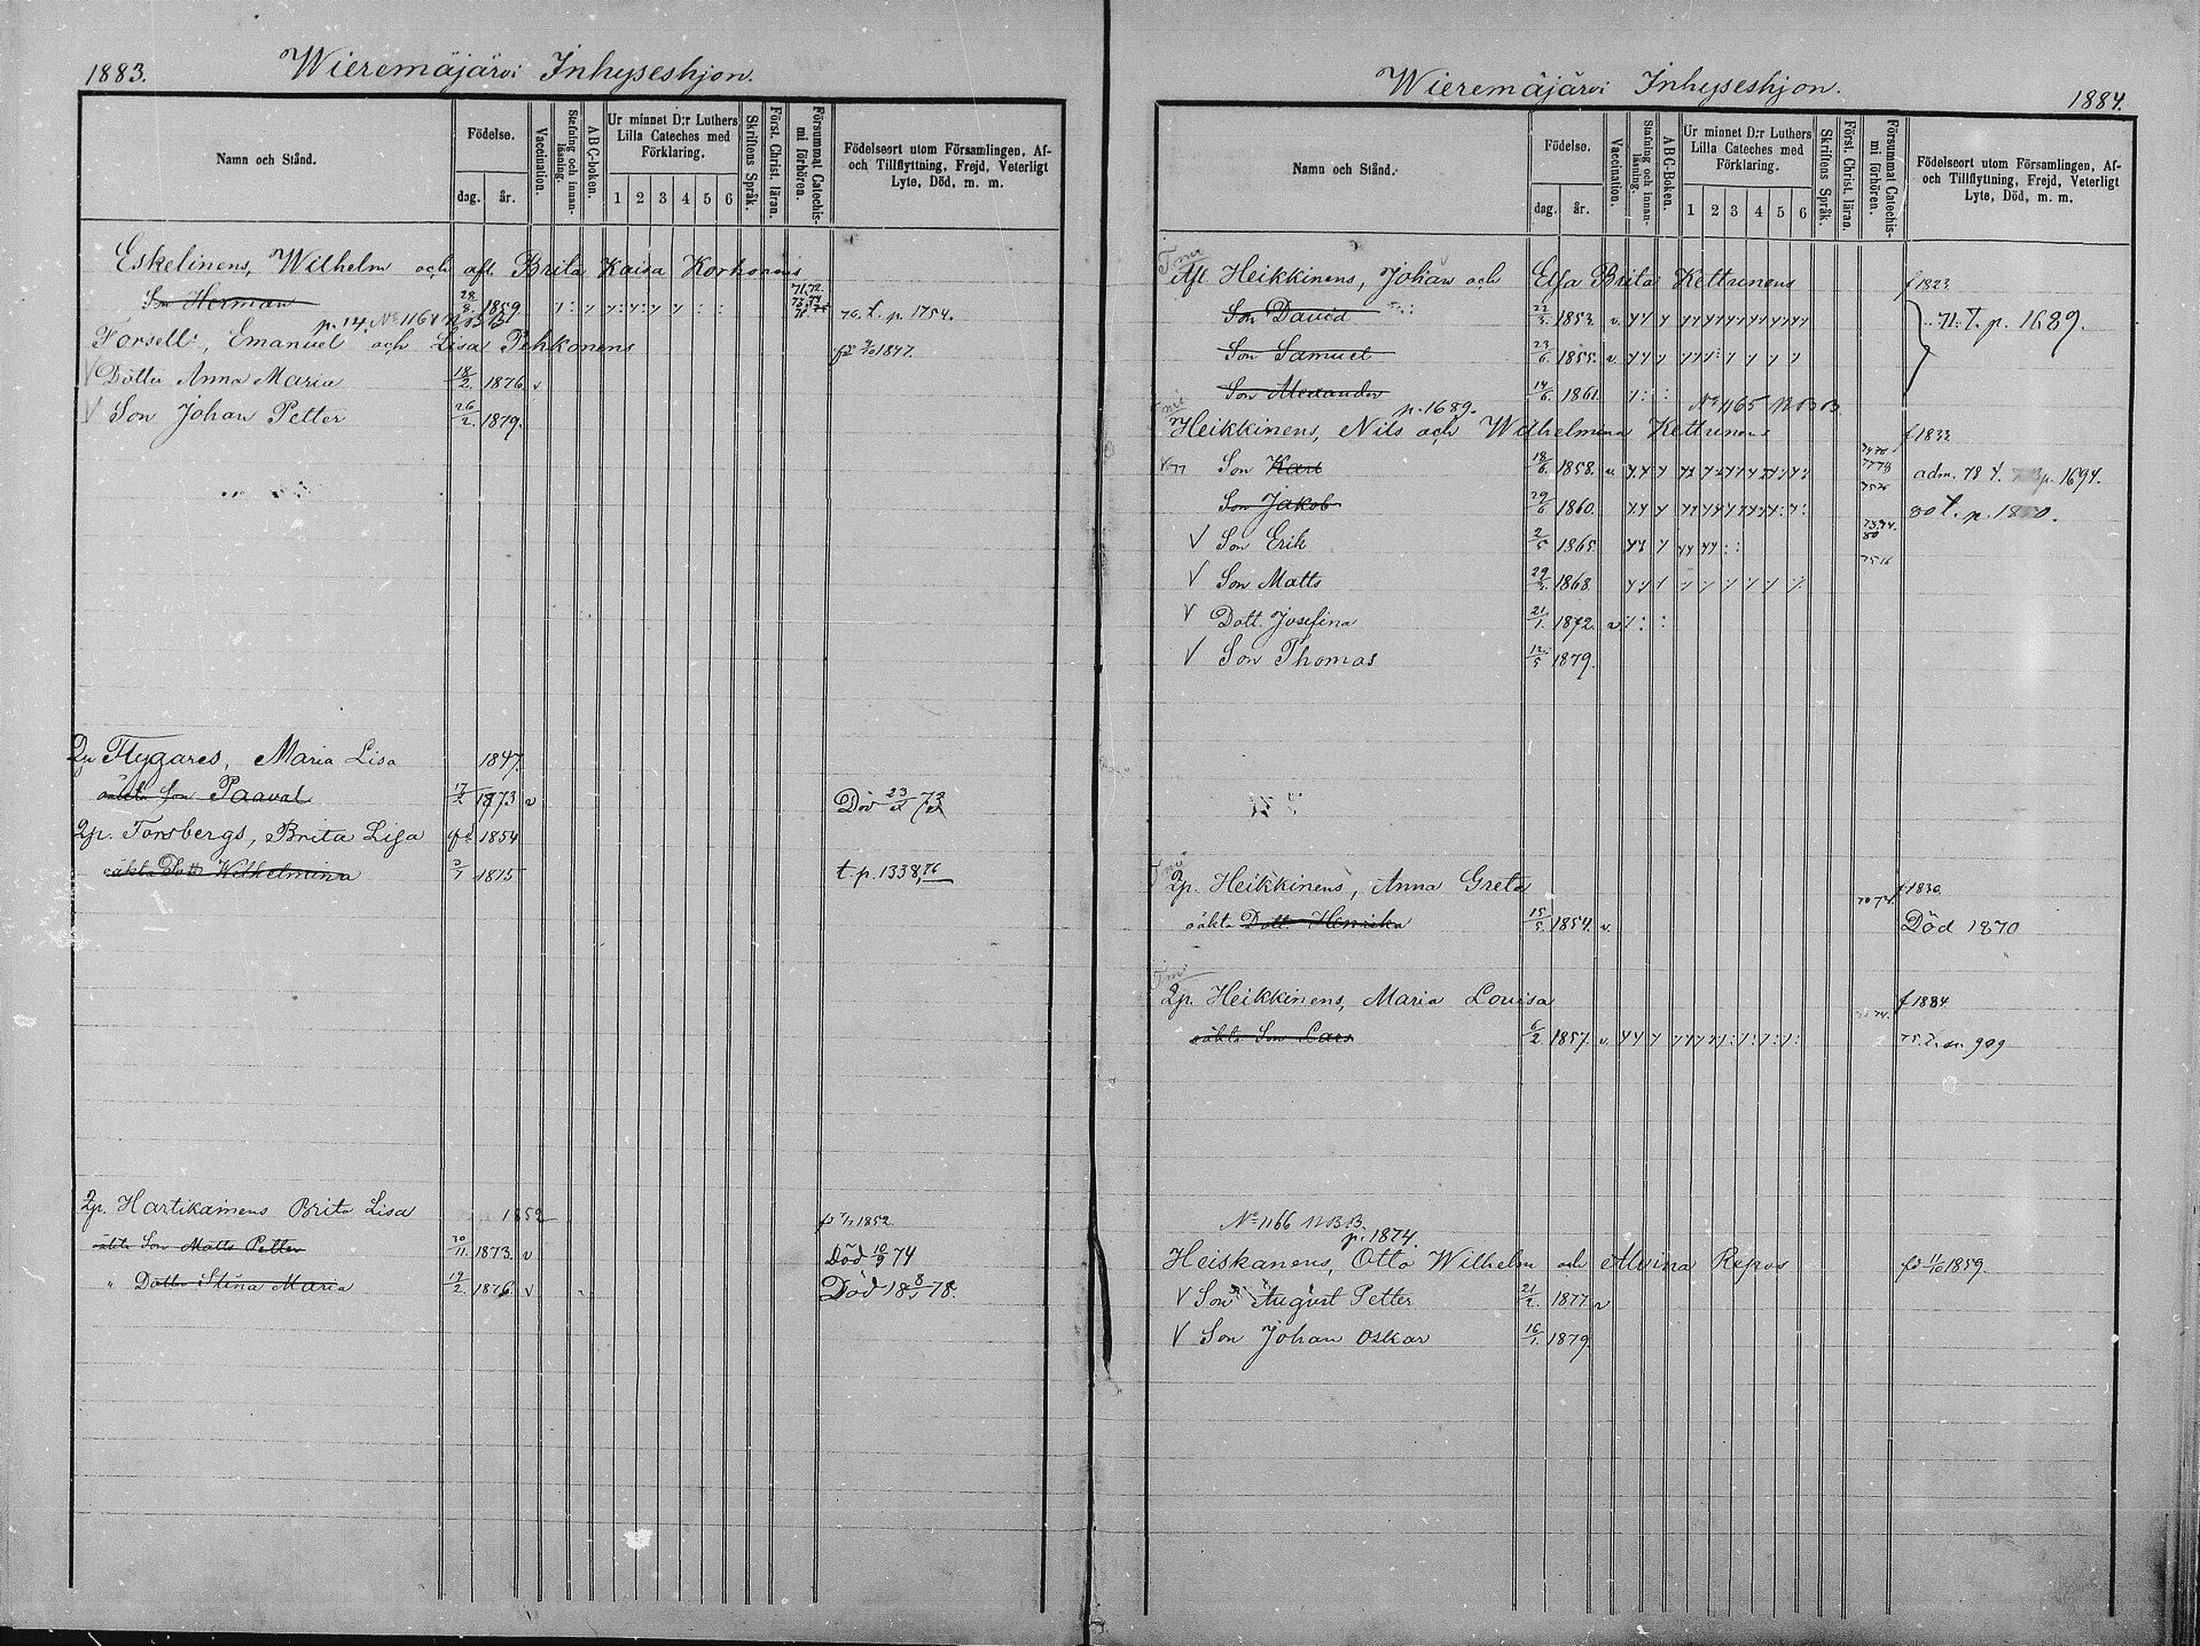 1883.
Wieremäjärvi Inhyseshjon.
Namn och Stånd.
Födelse.
dag.
år.
Vaccination.
Stafning och innan-
läsning.
A B C-boken.
Ur minnet D:r Luthers
Lilla Cateches med
Förklaring.
1 2 3 4 5 6
Skriftens Språk.
Först. Christ. läran.
Försummat Catechis-
mi förhören.
Födelseort utom Församlingen, Af-
och Tillflyttning, Frejd, Veterligt
Lyte, Död, m. m.
Eskelinens, Wilhelm och afl. Brita Kaisa Korhonens
Son Herman 28/8. 1859. 76. t. p. 1754.
p. 14. No 1164
Forsell:, Emanuel och Lisa Pehkonens 1847.
V Dotter Anna Maria 18/2. 1876 v
V Son Johan Petter 26/2. 1879.
Flygares, Maria Lisa 1847.
oäkta Son Paaval 17/2 1873 v Död 23/2 73
Qp. Forsbergs, Brita Lisa 1854
oäkta Dott. Wilhelmina 1875 t. p. 1338, 76
Qp. Hartikainens Brita Lisa 1852 1852
oäkta Son Matts Petter 20/11. 1873. v Död 10/9 74
" Dotter Stina Maria 19/2. 1876. v Död 18 8/5 78.
Wieremäjärvi Inhyseshjon.
1884.
Namn och Stånd.
Födelse.
dag.
år.
Vaccination.
Stafning och innan-
läsning.
A B C-Boken.
Ur minnet D:r Luthers
Lilla Cateches med
Förklaring.
1 2 3 4 5 6
Skriftens Språk.
Först. Christ. läran.
Försummat Catechis-
mi förhören.
Födelseort utom Församlingen, Af-
och Tillflyttning, Frejd, Veterligt
Lyte, Död, m. m.
Afl. Heikkinens, Johan och Elsa Brita Kettunens f 1823
Son David 22/3. 1853. v. 71. t. p. 1689.
Son Samuel 23/6 1855. v.
Son Alexander 14/6. 1861.
p. 1689. No 1165 N B B
Heikkinens, Nils och Wilhelmina Kettunens f 1833
Son Karl 18/6. 1858. adm. 78 t. p. 1694.
Son Jakob 29/6 1860. 80 t. p.
V Son Erik 2/5 1865.
V Son Matts 1868.
V Dott. Josefina 21/1. 1872. v
V Son Thomas 12/5 1879.
Qp. Heikkinens, Anna Greta f 1830.
oäkta Dott. Henrika 15/5. 1854. v. Död 1870
Qp. Heikkinens, Maria Louisa
oäkta Son Lars 6/2. 1857. v. 909
No 1166 N B B.
p. 1874.
Heiskanens, Otto Wilhelm och Alvina Repos 11/10 1859.
V Son August Petter 21/2. 1877. v
V Son Johan Oskar 16/1. 1879